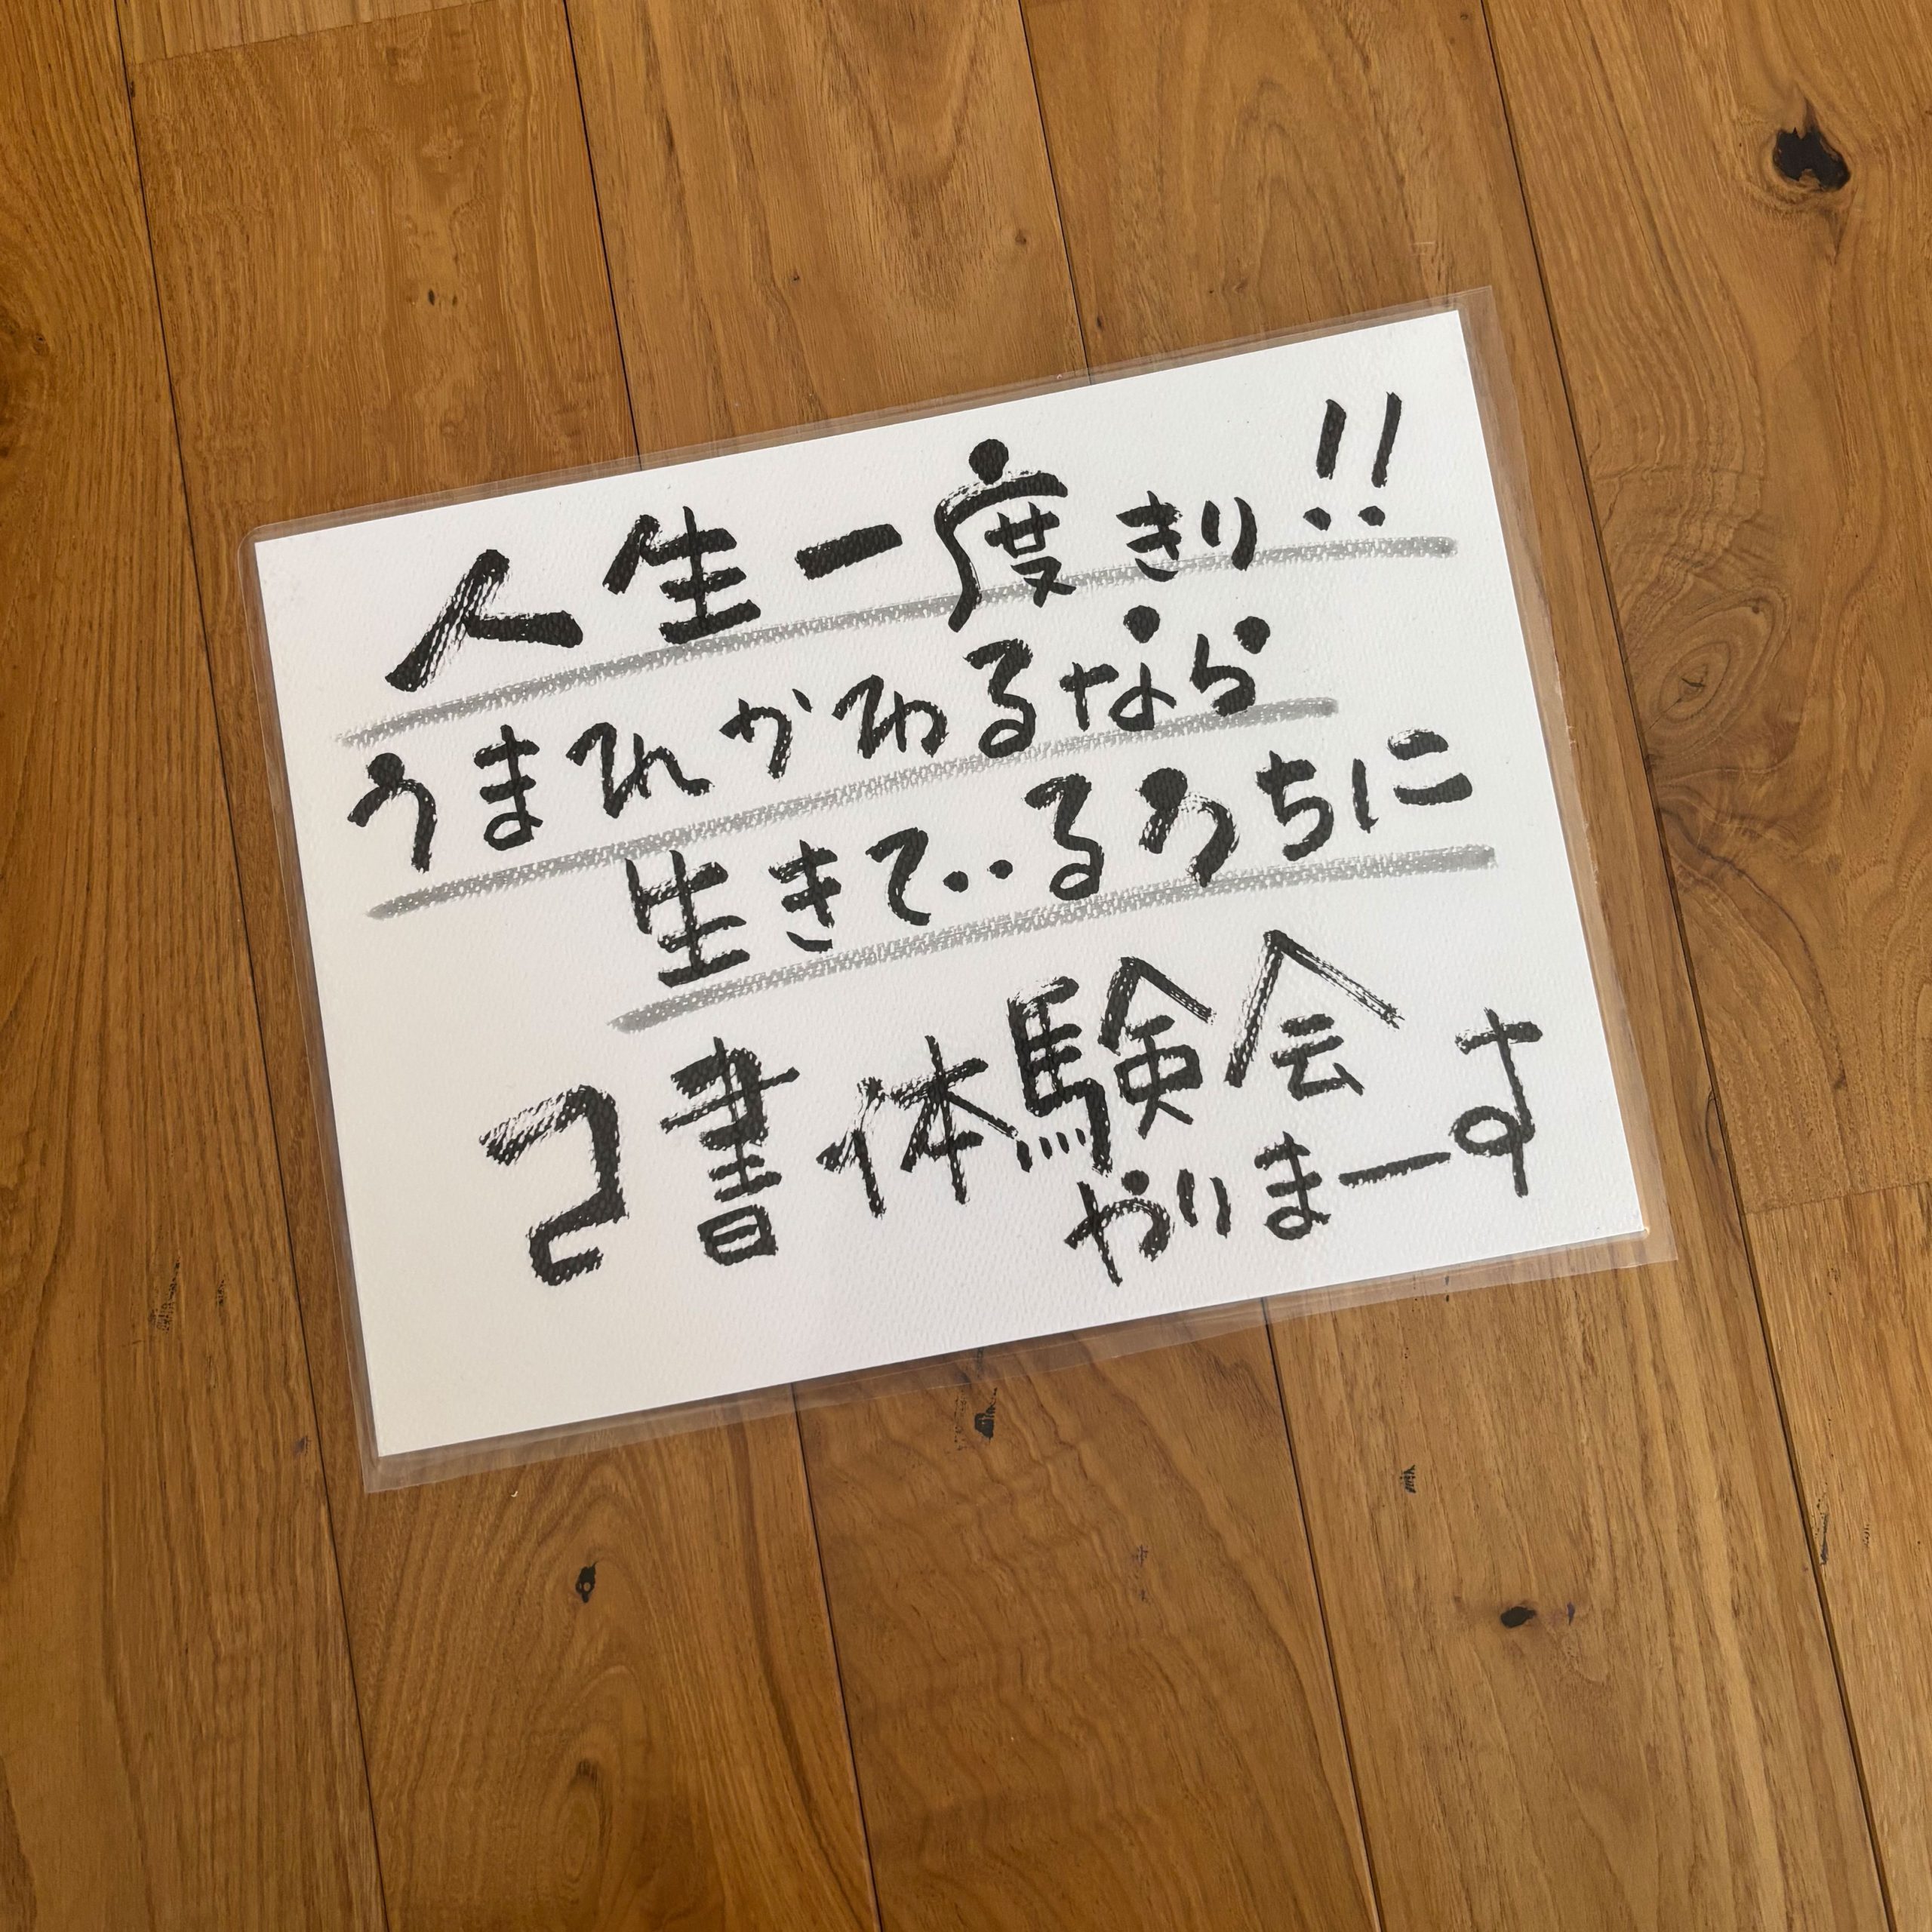 人生一度きり!!
うまれかわるなら
生きているうちに
己書体験会
やりまーす